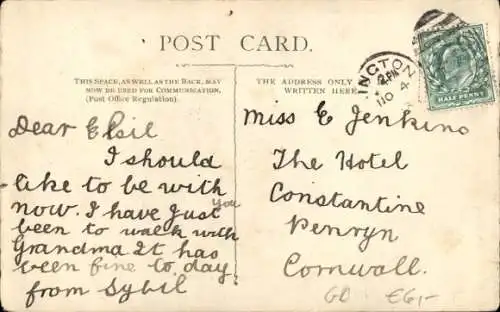 POST CARD.
THIS SPACE, AS WELL AS THE BACK, MAY
NOW BE USED FOR COMMUNICATION.
(Post Office Regulation).
THE ADDRESS ONLY
WRITTEN HERE
INGTON
2 PM
4
HALFPENNY
Dear Elsil
I should
like to be with
you
now. I have just
been to walk with
Grandma It has
been fine to day
from Sybil
Miss E Jenkins
The Hotel
Constantine
Penryn
Cornwall.
GD £6,-